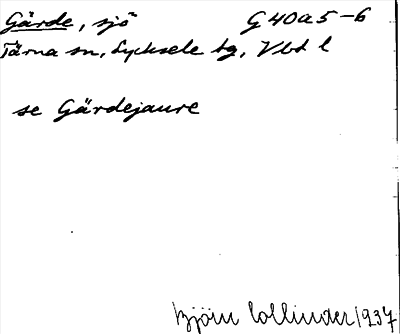 Gärde, sjö G 40 a 5-6
Tärna sn, Lycksele lg, Vbt l
se Gärdejaure
Björn Collinder 1937